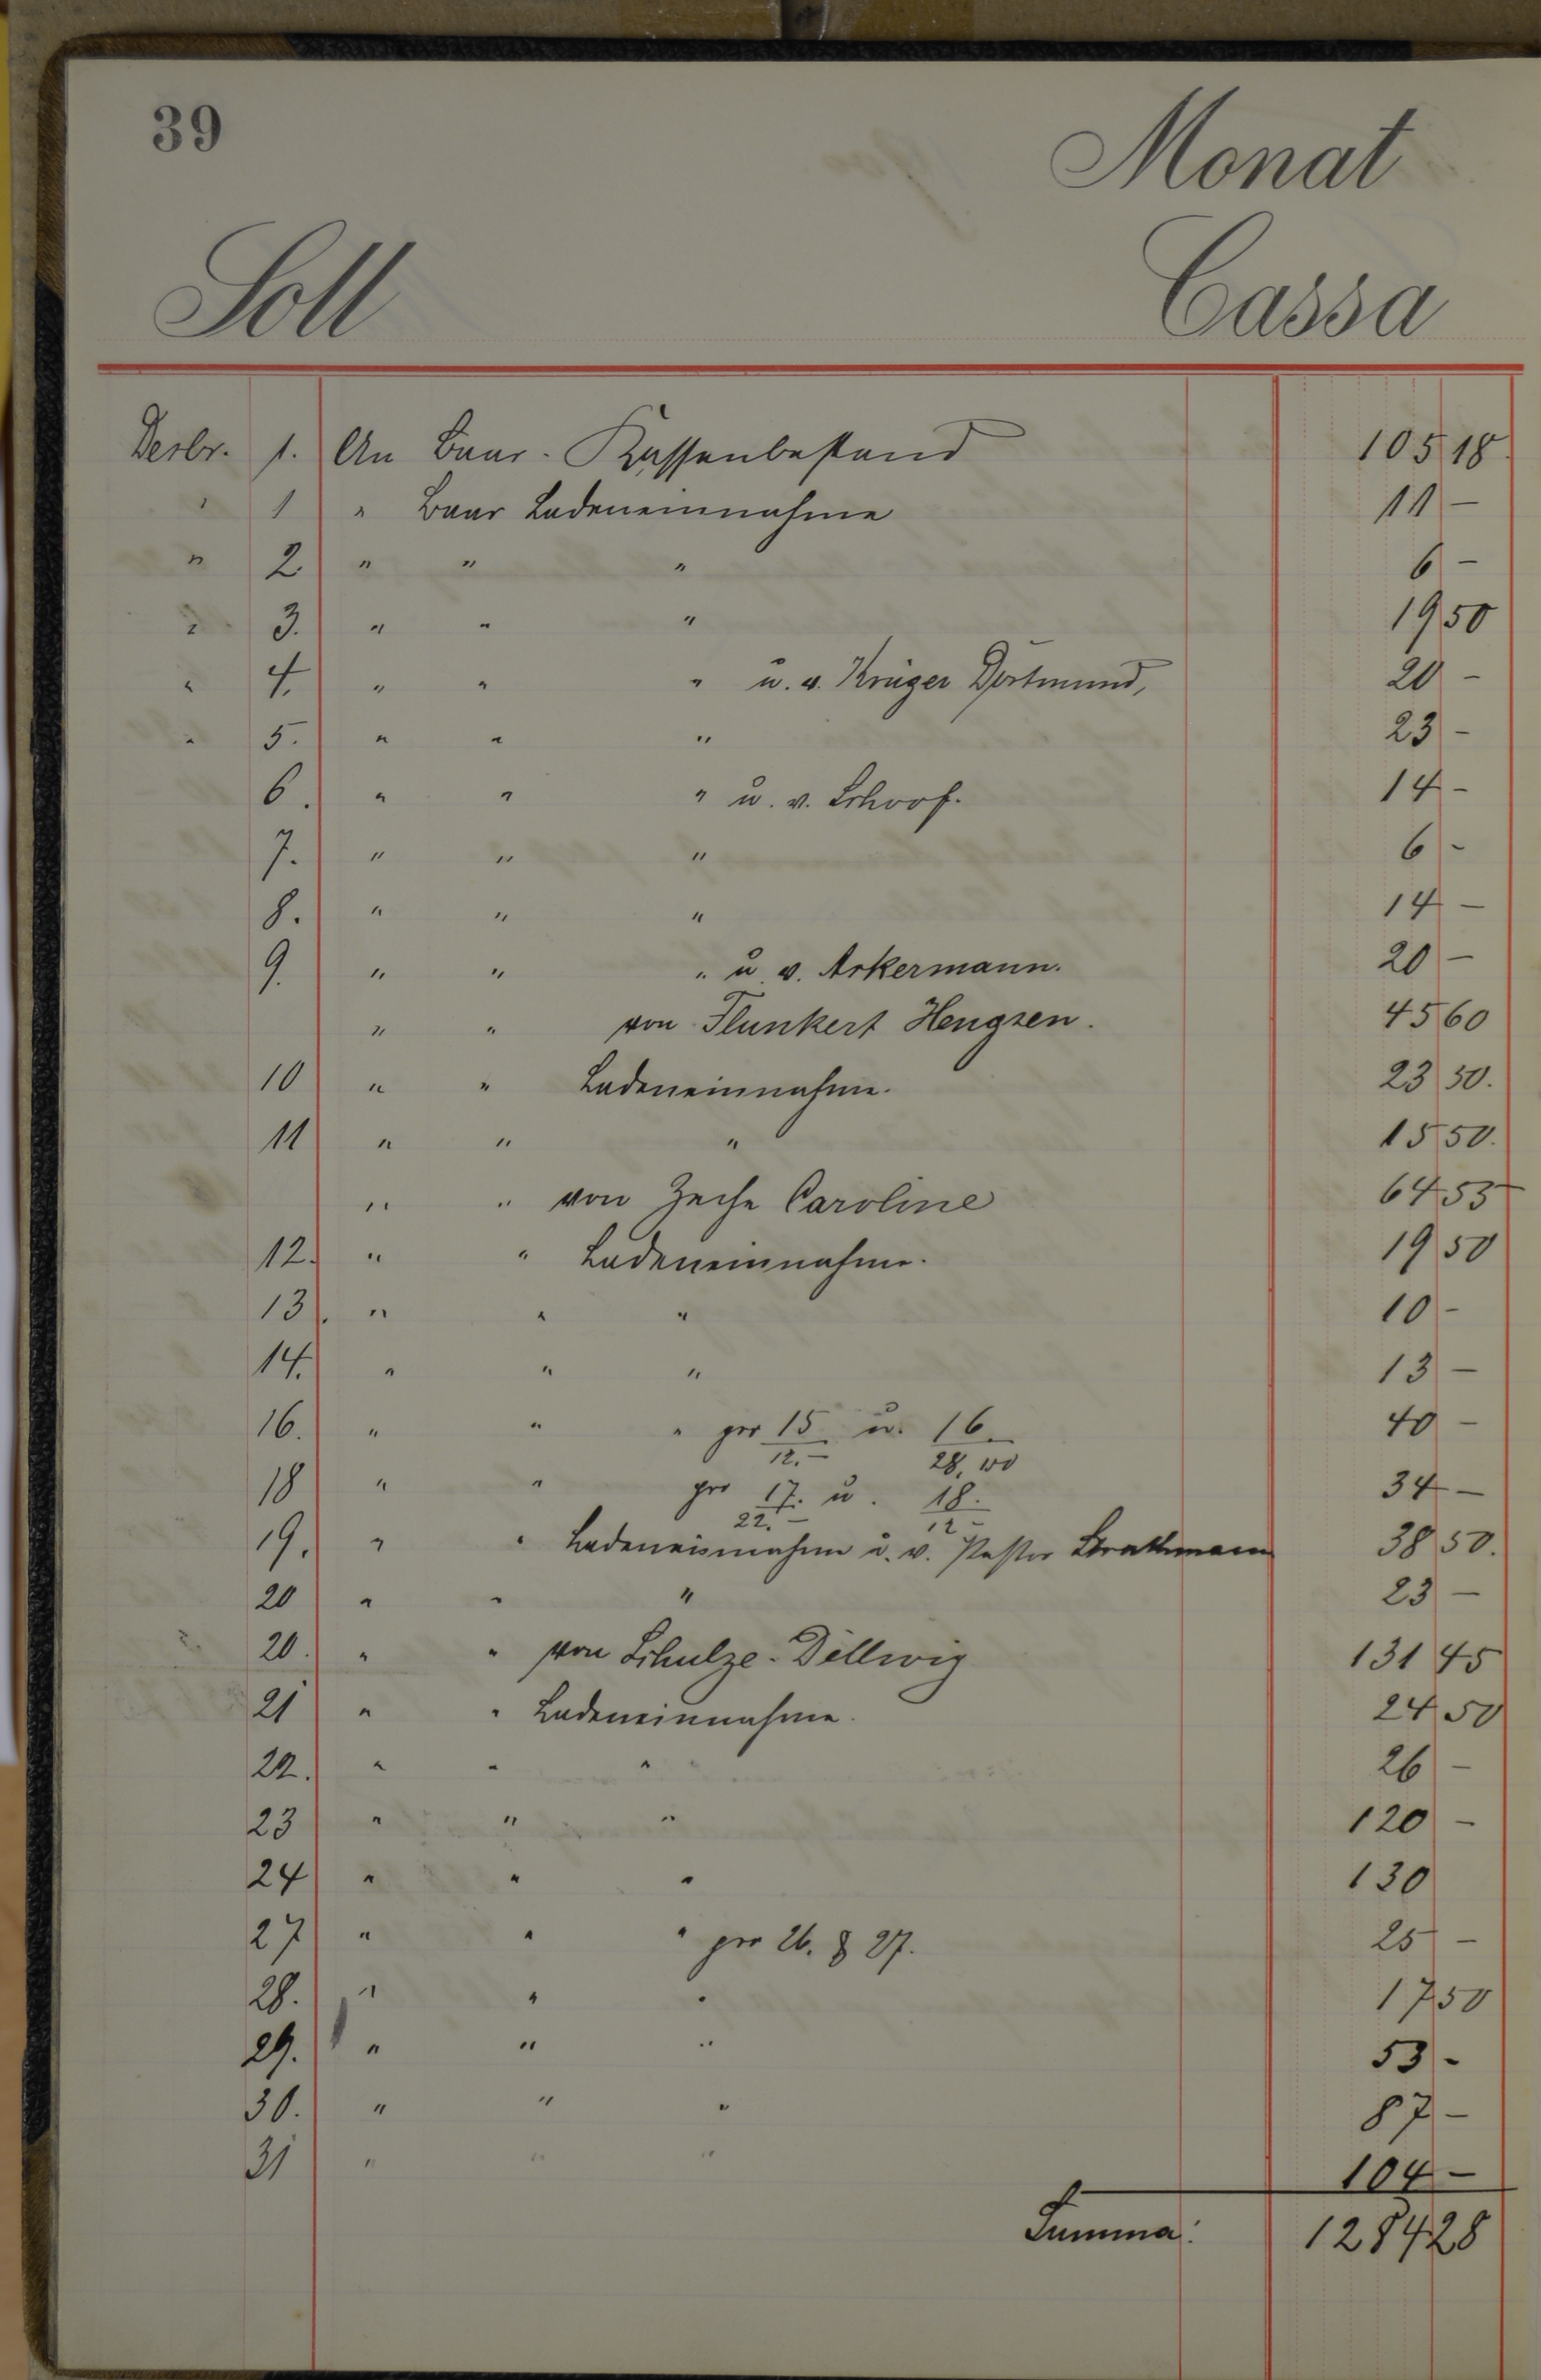 39
Monat
Soll
Cassa
Dezbr. 1. An Baar-Kassenbestand 105 18
" 1 " Baar Ladeneinnahme 11 –
" 2 " " " 6 –
" 3. " " " 19 50
" 4. " " " u. v. Krüger Dortmund, 20 –
" 5. " " " 23 –
6. " " " u. v. Schoof. 14 –
7. " " " 6 –
8. " " " 14 –
9. " " " u v. Ackermann. 20 –
" " von Flunkert Hengsen. 45 60
10 " " Ladeneinnahme. 23 50.
11 " " " 15 50.
" " von Zeche Caroline 64 55
12. " " Ladeneinnahme. 19 50
13. " " " 10 –
14. " " " 13 –
16. " " " per 15 u. 16. 40 –
12.– 28,00
18 " " per 17. u. 18. 34 –
22.– 12 –
19. " " Ladeneinnahme u. v. Pastor Strathmann 38 50.
20 " " " 23 –
20. " " von Schulze-Dellwig 131 45
21 " " Ladeneinnahme. 24 50
22. " " " 26 –
23 " " " 120 –
24 " " " 130
27 " " " per 26. & 27. 25 –
28. " " " 17 50
29. " " " 53 –
30. " " " 87 –
31 " " " 104 –
Summa: 1284 28